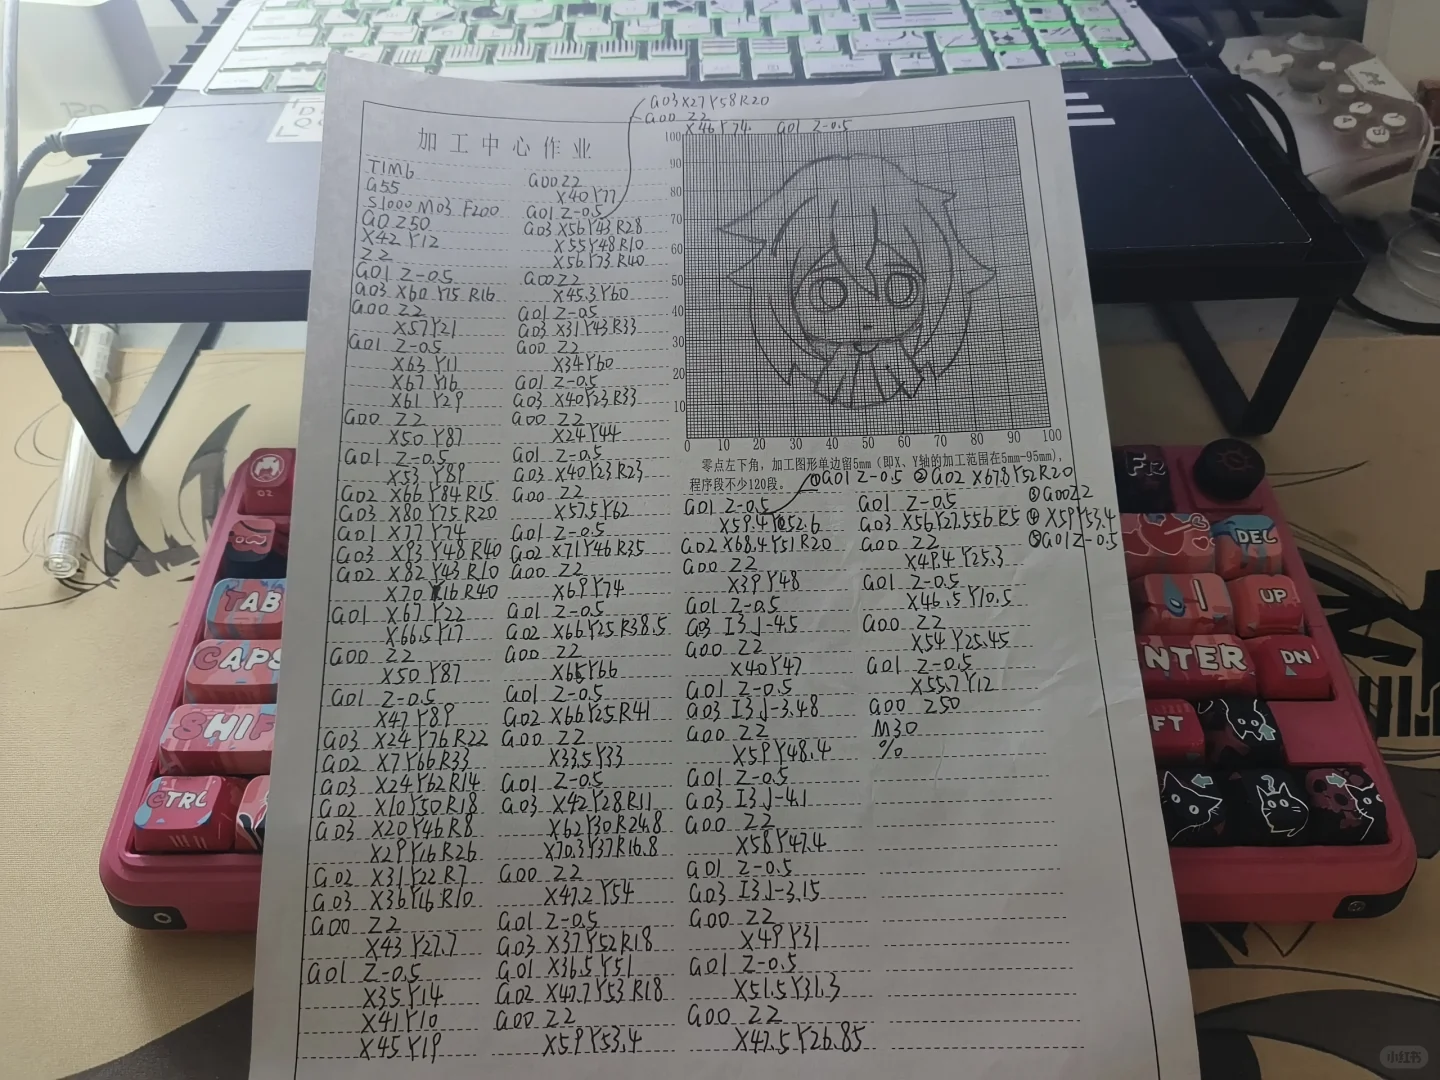 G03 X27Y58R20
G00 Z2
X46Y74 G01 Z-0.5
加工中心作业
T1M6
G55
S1000 M03 F200
G0 Z50
X42 Y12
Z2
G01 Z-0.5
G03 X60 Y15 R16
G00 Z2
X57Y21
G01 Z-0.5
X63 Y11
X67 Y16
X61 Y29
G00 Z2
X50 Y87
G01 Z-0.5
X53 Y89
G02 X66 Y84 R15
G03 X80 Y75 R20
G01 X77 Y74
G03 X93 Y48 R40
G02 X82 Y43 R10
X70 Y16 R40
G01 X67 Y22
X66.5Y17
G00 Z2
X50 Y87
G01 Z-0.5
X47 Y89
G03 X24 Y76 R22
G02 X7Y66R33
G03 X24Y62R14
G02 X10Y50R18
G03 X20 Y46 R8
X29Y16 R26
G02 X31Y22R7
G03 X36Y16 R10
G00 Z2
X43 Y27.7
G01 Z-0.5
X35Y14
X41Y10
X45 Y19
G00 Z2
X40Y77
G01 Z-0.5
G03 X56Y43R28
X55Y48R10
X56Y73R40
G00 Z2
X45.3Y60
G01 Z-0.5
G03 X31Y43R33
G00 Z2
X34Y60
G01 Z-0.5
G03 X40Y23R33
G00 Z2
X24Y44
G01 Z-0.5
G03 X40Y23R23
G00 Z2
X57.5Y62
G01 Z-0.5
G02 X71Y46R35
G00 Z2
X69Y74
G01 Z-0.5
G02 X66Y25R38.5
G00 Z2
X65Y66
G01 Z-0.5
G02 X66Y25R41
G00 Z2
X33.5Y33
G01 Z-0.5
G03 X42Y28R11
X62Y30R24.8
X70.3Y37R16.8
G00 Z2
X47.2Y54
G01 Z-0.5
G03 X37Y52R18
G01 X36.5Y51
G02 X47.7Y53R18
G00 Z2
X59Y53.4
100
90
80
70
60
50
40
30
20
10
0 10 20 30 40 50 60 70 80 90 100
零点左下角，加工图形单边留5mm（即X、Y轴的加工范围在5mm-95mm），
程序段不少120段。
①G01 Z-0.5 ②G02 X67.8Y52R20
③G00Z2
④X59Y53.4
⑤G01Z-0.5
G01 Z-0.5
X59.4Y52.6
G02 X68.4Y51R20
G00 Z2
X39Y48
G01 Z-0.5
G03 I3J-4.5
G00 Z2
X40Y47
G01 Z-0.5
G03 I3J-3.48
G00 Z2
X59Y48.4
G01 Z-0.5
G03 I3J-4.1
G00 Z2
X58Y47.4
G01 Z-0.5
G03 I3J-3.15
G00 Z2
X49Y31
G01 Z-0.5
X51.5Y31.3
G00 Z2
X47.5Y26.85
G01 Z-0.5
G03 X56Y27.556R5
G00 Z2
X49.4Y25.3
G01 Z-0.5
X46.5Y10.5
G00 Z2
X54Y25.45
G01 Z-0.5
X55.7Y12
G00 Z50
M30
%
02
TAB
CAPS
SHIF
CTRL
DEL
UP
NTER
DN
FT
小红书